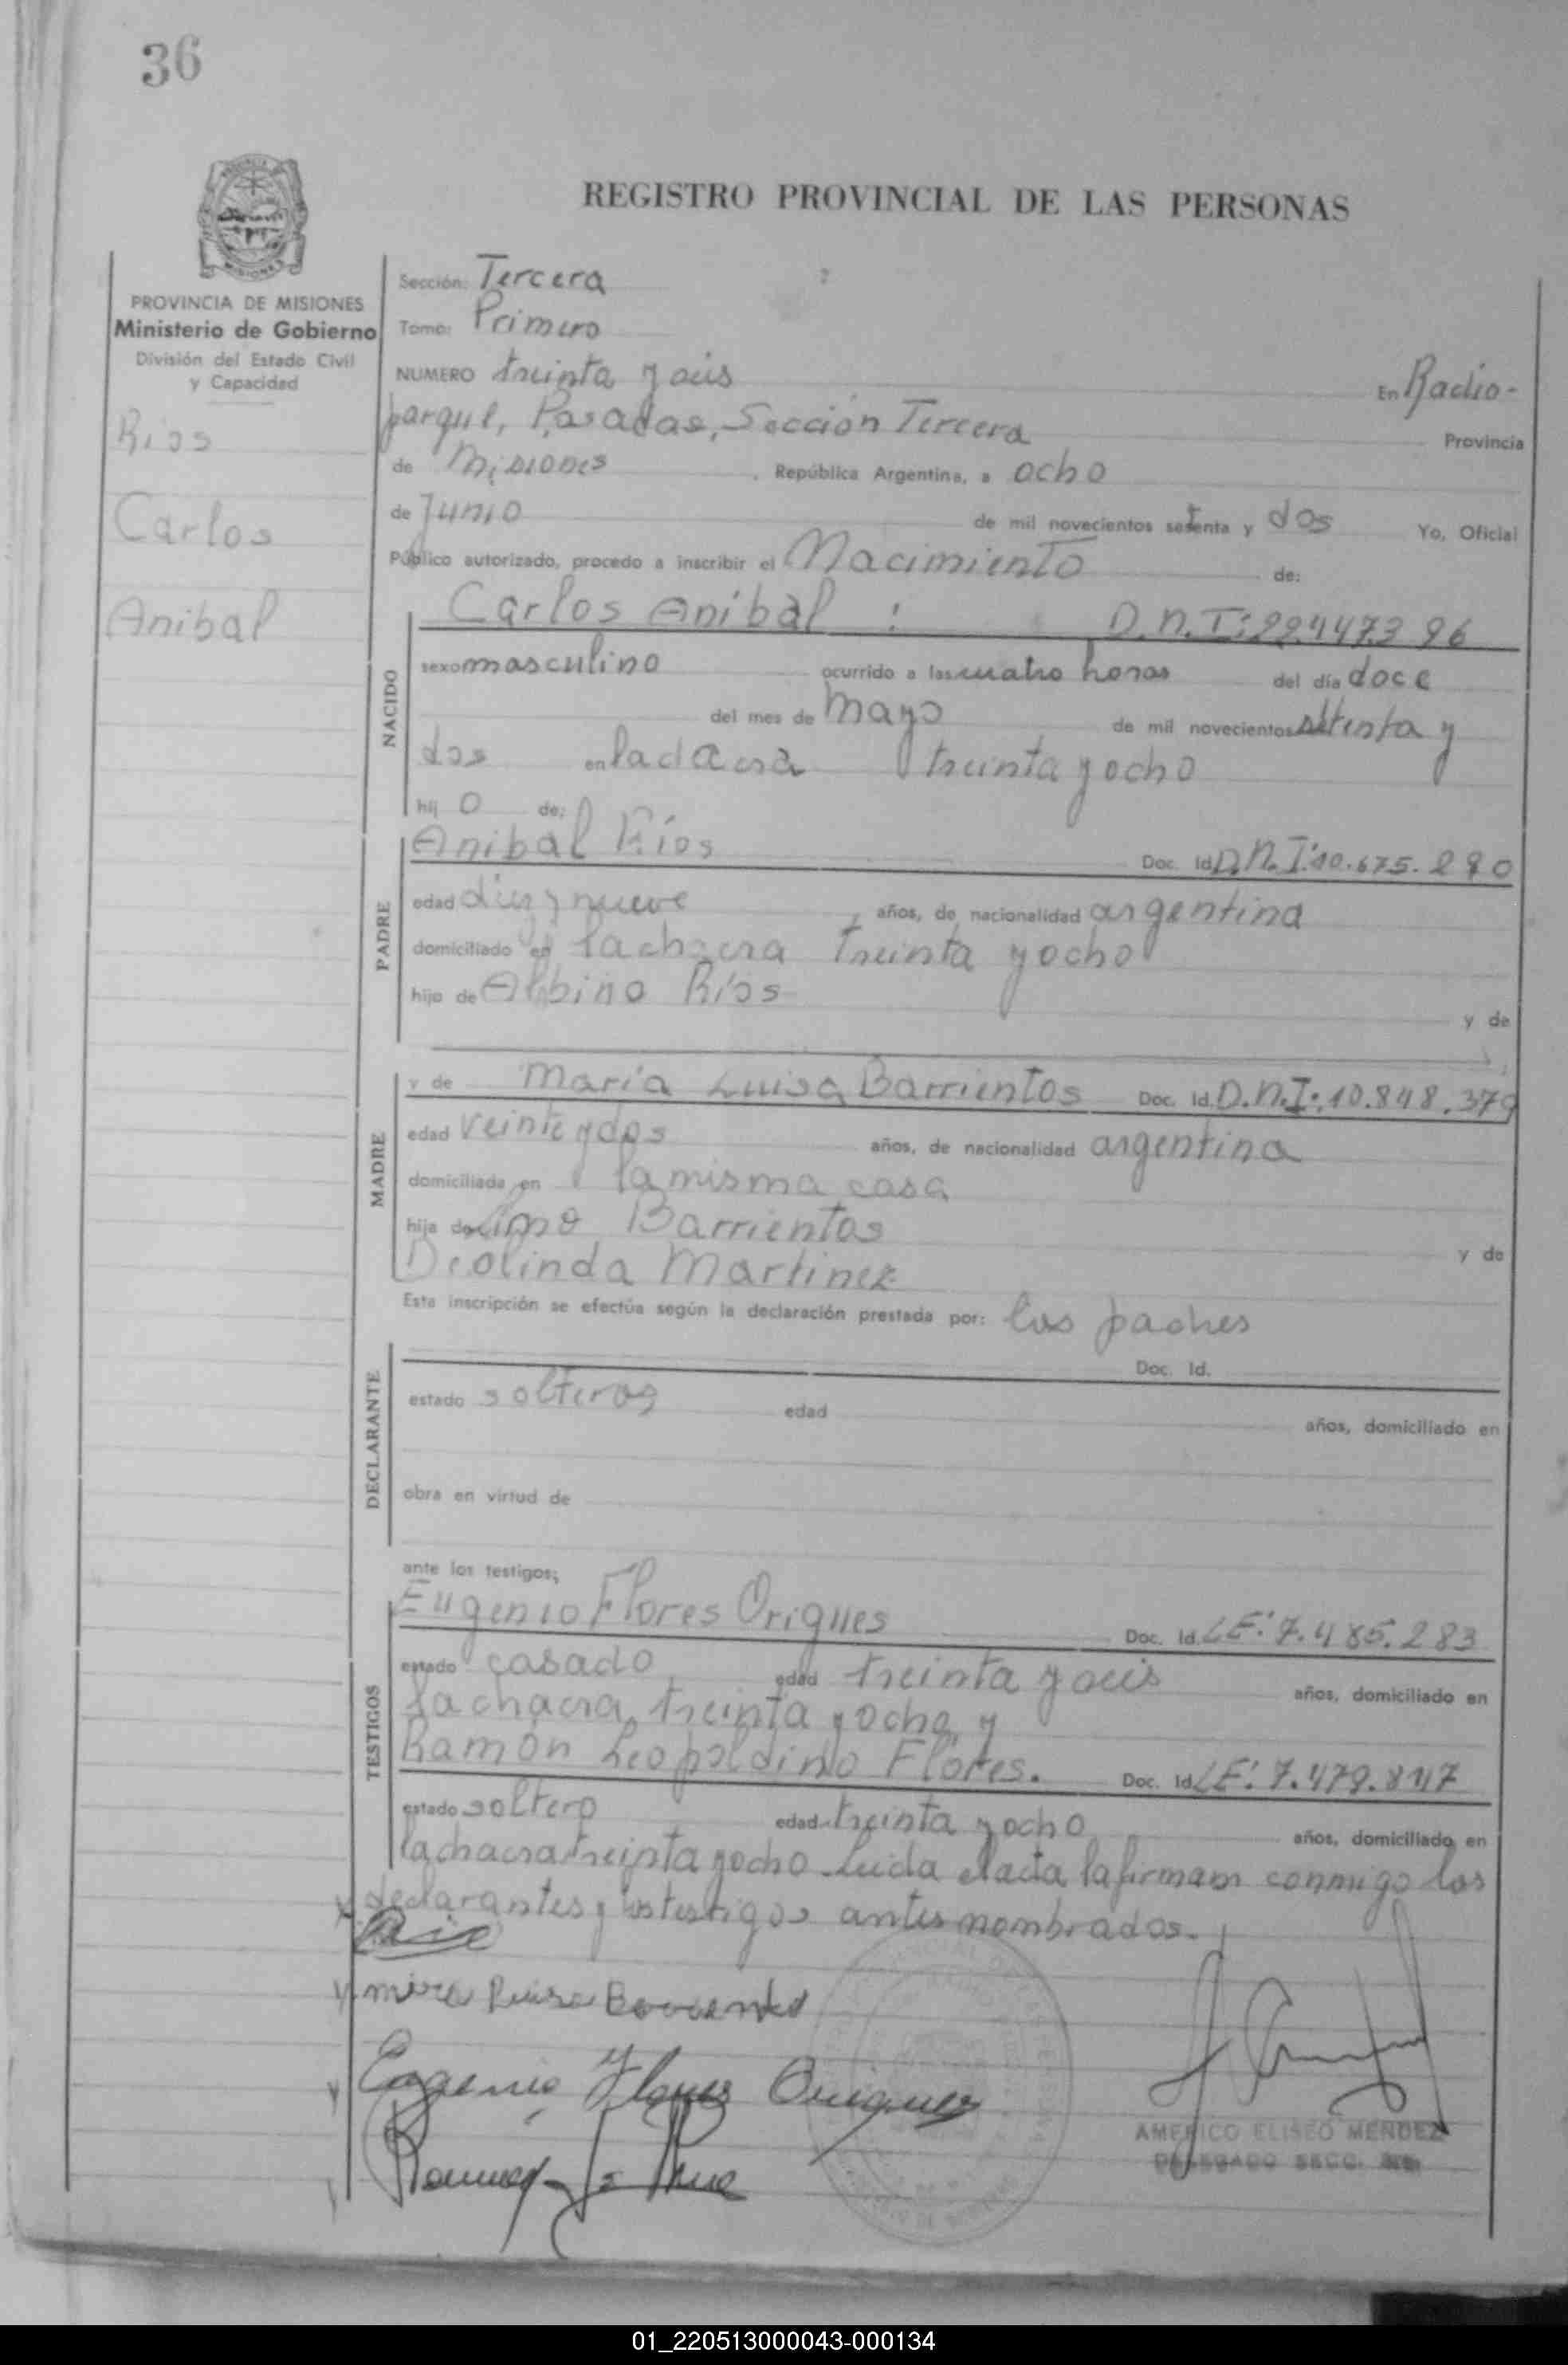 36
REGISTRO PROVINCIAL DE LAS PERSONAS
PROVINCIA DE MISIONES
Ministerio de Gobierno
División del Estado Civil
y Capacidad
Rios
Carlos
Anibal
Sección: Tercera
Tomo: Primero
NUMERO treinta y seis En Radio-
parque, Posadas, Sección Tercera Provincia
de Misiones, República Argentina, a ocho
de Junio de mil novecientos setenta y dos Yo, Oficial
Público autorizado, procedo a inscribir el Nacimiento de:
Carlos Anibal : D.N.I:22.447.396
NACIDO
sexo masculino ocurrido a las cuatro horas del día doce
del mes de Mayo de mil novecientos setenta y
dos en la chacra treinta y ocho
hij o de:
PADRE
Anibal Ríos Doc. Id. D.N.I:10.675.290
edad diez y nueve años, de nacionalidad argentina
domiciliado en la chacra treinta y ocho
hijo de Albino Ríos y de
MADRE
y de María Luisa Barrientos Doc. Id. D.N.I:10.848.379
edad veinte y dos años, de nacionalidad argentina
domiciliada en la misma casa
hija de Limo Barrientos y de
Deolinda Martinez
Esta inscripción se efectúa según la declaración prestada por: los padres
DECLARANTE
Doc. Id.
estado solteros edad años, domiciliado en
obra en virtud de
ante los testigos;
TESTIGOS
Eugenio Flores Origues Doc. Id. LE: 7.485.283
estado casado edad treinta y seis años, domiciliado en
la chacra treinta y ocho y
Ramón Leopoldino Flores. Doc. Id. LE: 7.479.817
estado soltero edad treinta y ocho años, domiciliado en
la chacra treinta y ocho. Leida el acta la firman conmigo los
declarantes y los testigos antes nombrados.
Eugenio Flores Origues
AMERICO ELISEO MENDEZ
DELEGADO SECC. 3ra.
01_220513000043-000134